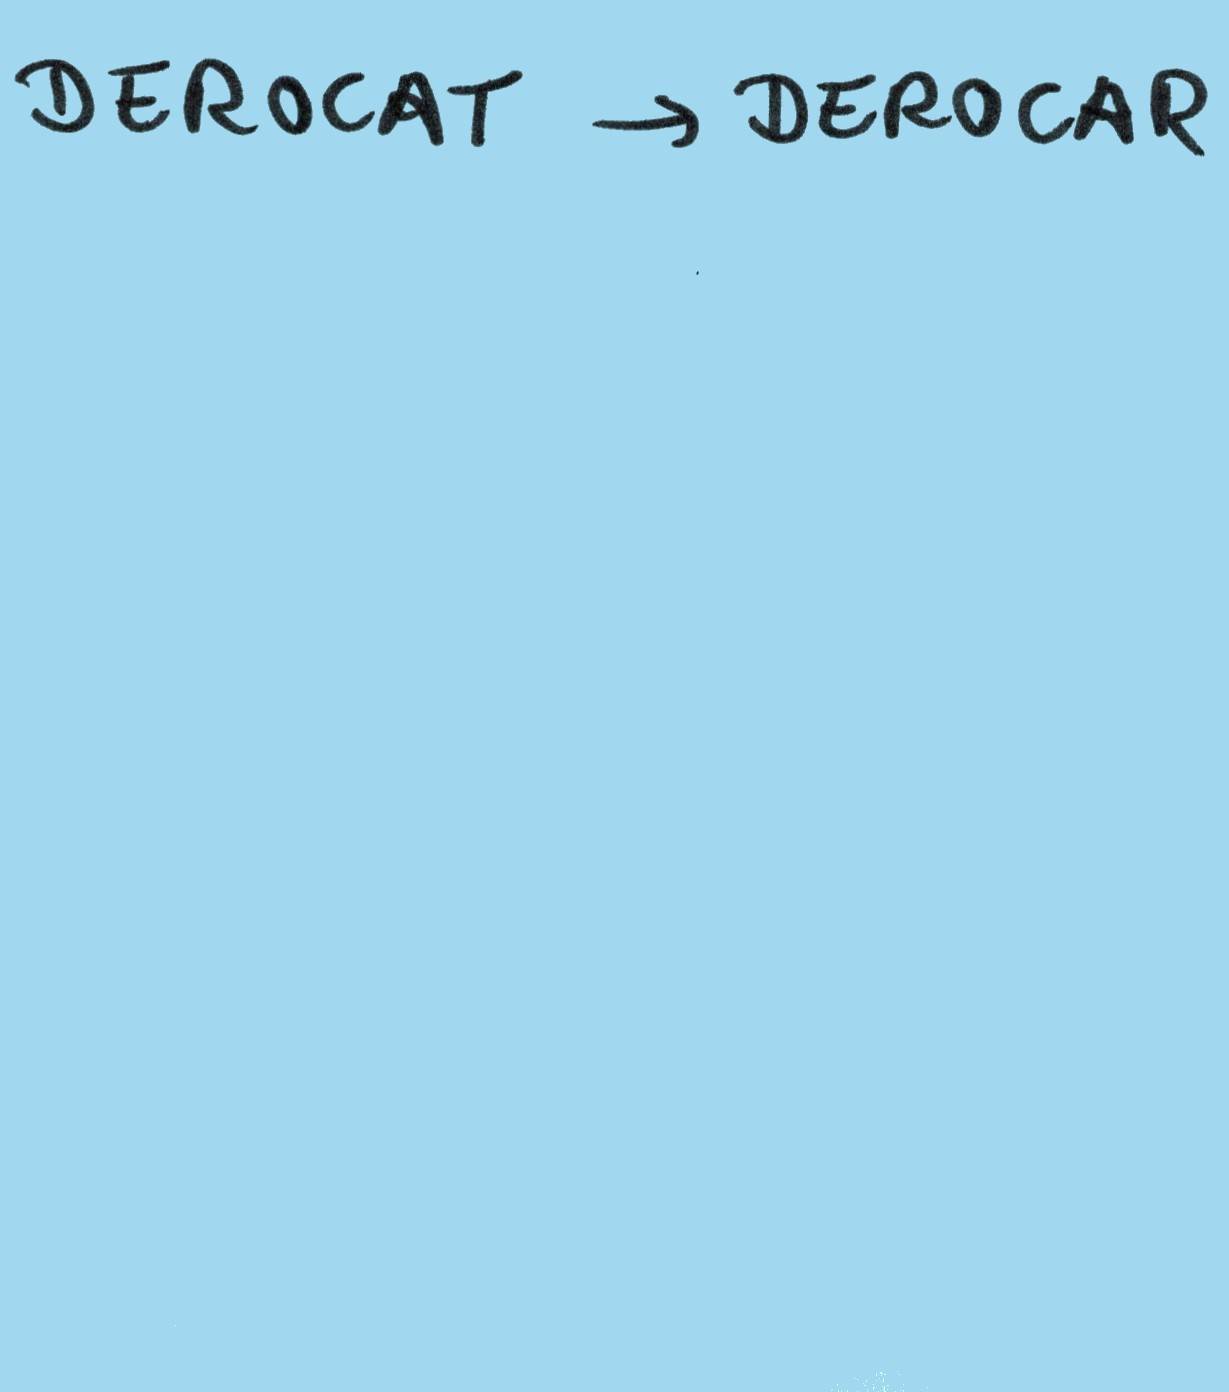 DEROCAT → DEROCAR